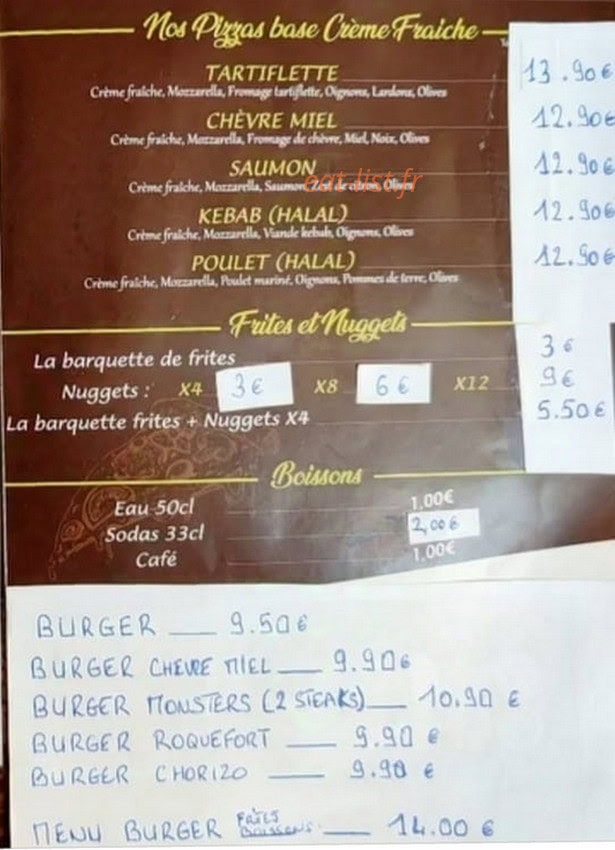 Nos Pizzas base Crème Fraîche
TARTIFLETTE 13.90€
Crème fraîche, Mozzarella, Fromage tartiflette, Oignons, Lardons, Olives
CHÈVRE MIEL 12.90€
Crème fraîche, Mozzarella, Fromage de chèvre, Miel, Noix, Olives
SAUMON 12.90€
eat-list.fr
Crème fraîche, Mozzarella, Saumon, Zest de citron, Olives
KEBAB (HALAL) 12.90€
Crème fraîche, Mozzarella, Viande kebab, Oignons, Olives
POULET (HALAL) 12.90€
Crème fraîche, Mozzarella, Poulet mariné, Oignons, Pommes de terre, Olives
Frites et Nuggets
La barquette de frites 3€
Nuggets : X4 3€ X8 6€ X12 9€
La barquette frites + Nuggets X4 5.50€
Boissons
Eau 50cl 1,00€
Sodas 33cl 2,00€
Café 1,00€
BURGER 9.50€
BURGER CHEVRE MIEL 9.90€
BURGER MONSTERS (2 STEAKS) 10.90€
BURGER ROQUEFORT 9.90€
BURGER CHORIZO 9.90€
MENU BURGER FRITES BOISSONS 14.00€